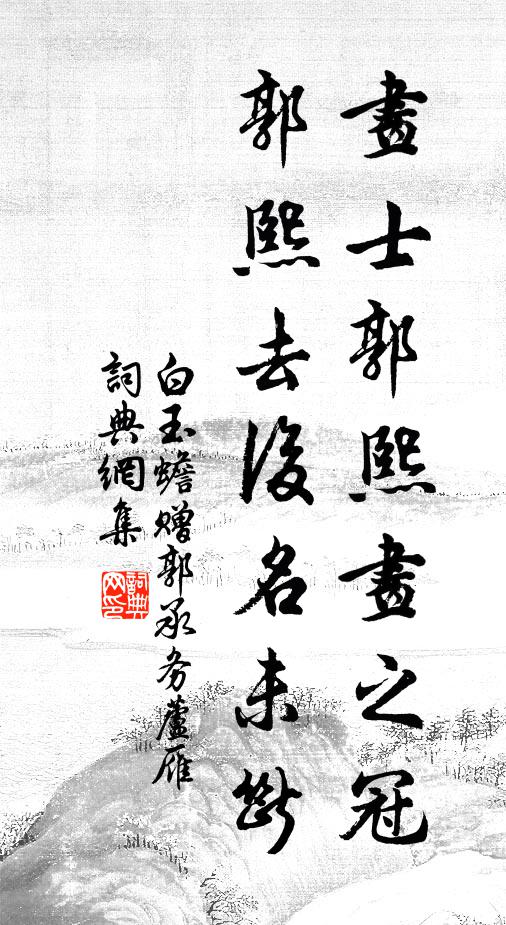 畫士郭熙畫之冠
郭熙去後名未斷
白玉蟾贈郭承务蘆雁
詞典網集
詞典網印